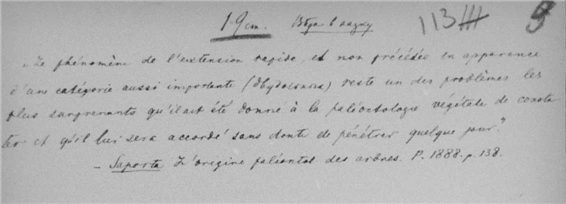 19 см. 113
„Le phénomène de l'extension rapide, et non précédée en apparence
d'une catégorie aussi importante reste un des problèmes les
plus surprenants qu'il ait été donné à la paléontologie végétale de consta-
ter et qu'il lui sera accordé sans doute de pénétrer quelque jour."
– Saporta L'origine paléontol. des arbres. P. 1888. p. 138.